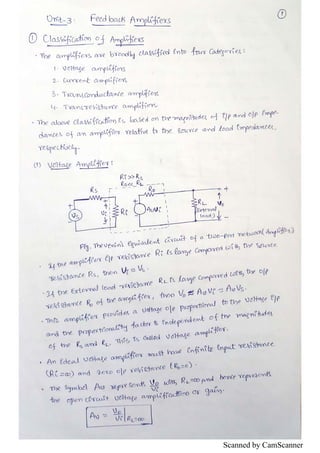 ①
Unit-3: Feedback Amplifiers
① Classification of Amplifiers
· The amplifiers are broadly classified into four categories:
1- Voltage amplifiers
2- Current amplifiers
3- Transconductance amplifiers
4- Transresistance amplifiers.
· The above classification is based on the magnitudes of I/p and o/p Impe-
dances of an amplifier relative to the source and load Impedances,
respectively.
(1) Voltage Amplifier:
Ri>>Rs
Ro<<RL
Rs Ro +
+ + RL
Vs Vi Ri AvVi External Vo
- - load -
Fig. Thevenin's equivalent circuit of a two-port network (Amplifier)
· If the amplifier I/p resistance Ri is large compared with the source
resistance Rs, then Vi ≅ Vs.
· If the External load resistance RL is large compared with the o/p
resistance Ro of the amplifier, then Vo ≅ AvVi ≅ AvVs.
· This amplifier provides a voltage o/p proportional to the voltage I/p
and the proportionality factor is independent of the magnitudes
of the Rs and RL. This is called voltage amplifier.
· An Ideal voltage amplifier must have infinite Input resistance
(Ri=∞) and zero o/p resistance (Ro=0).
· The symbol Av represents Vo/Vi with RL=∞, and hence represents
the open circuit voltage amplification or gain.
Av = Vo/Vi | RL=∞
Scanned by CamScanner